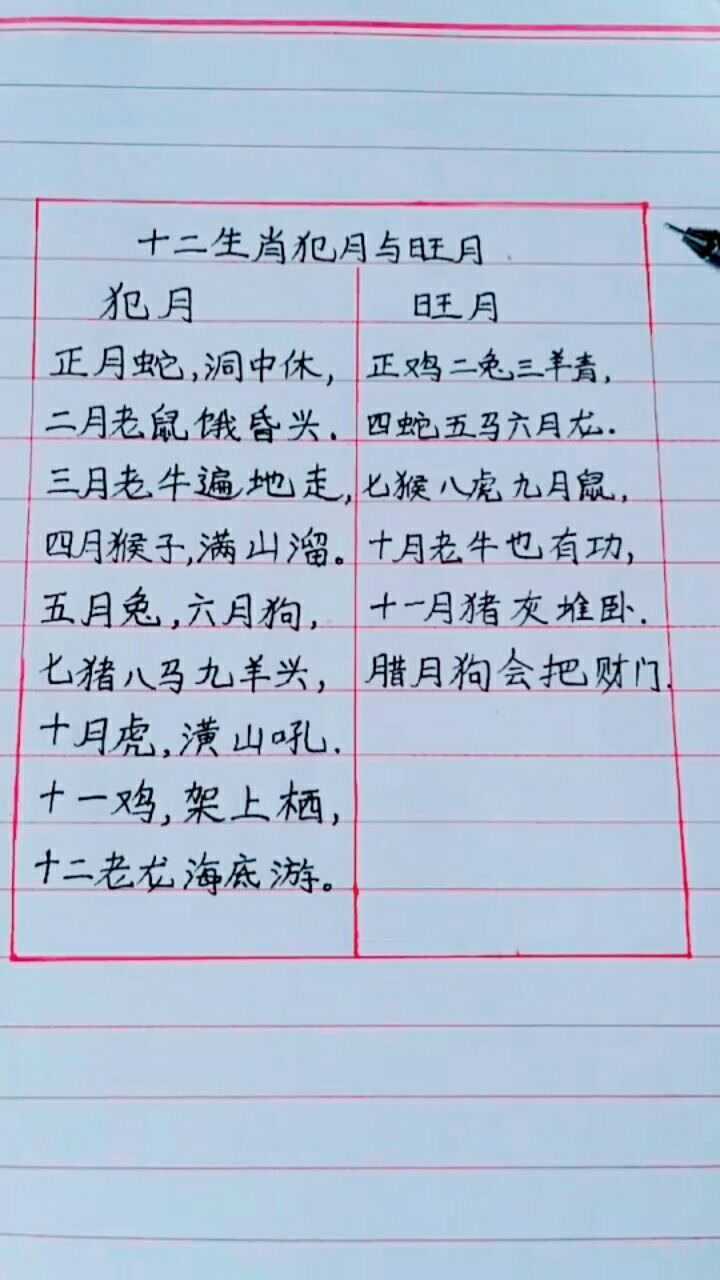 十二生肖犯月与旺月
犯月
正月蛇,洞中休,
二月老鼠饿昏头.
三月老牛遍地走,
四月猴子,满山溜。
五月兔,六月狗,
七猪八马九羊头,
十月虎,潢山吼.
十一鸡,架上栖,
十二老龙海底游。
旺月
正鸡二兔三羊青,
四蛇五马六月龙.
七猴八虎九月鼠,
十月老牛也有功,
十一月猪灰堆卧.
腊月狗会把财门.